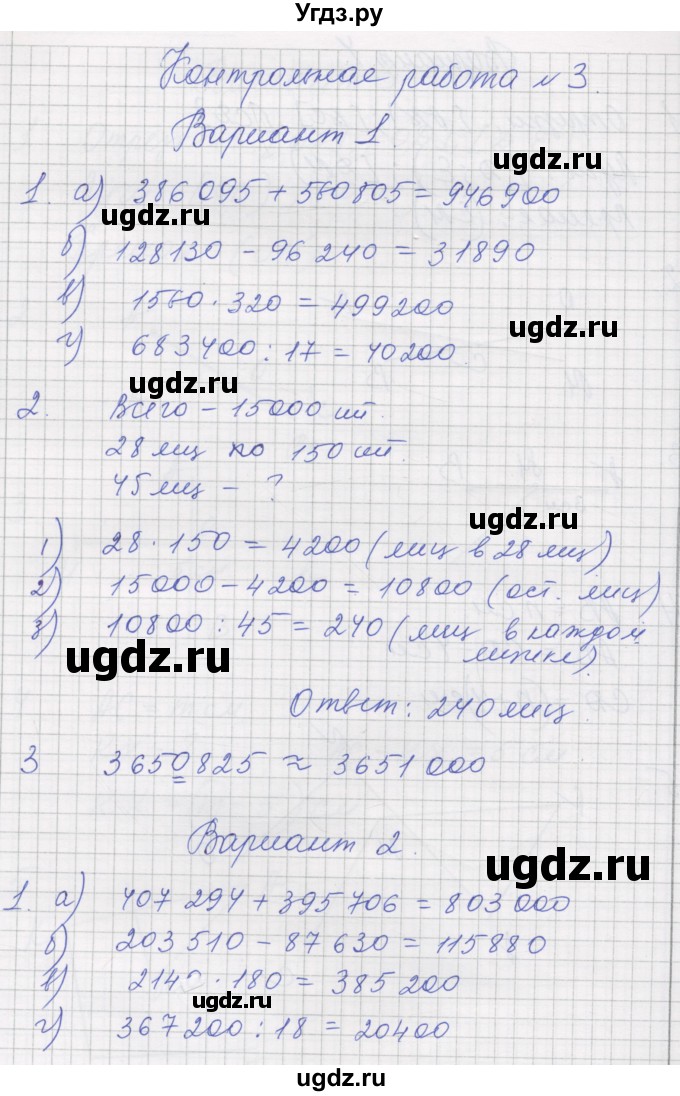 Угдз.ру
Контрольная работа №3.
Вариант 1.
ugdz.ru
1 а) 386 095 + 560 805 = 946 900
ugdz.ru
б) 128130 - 96 240 = 31890
в) 1560 · 320 = 499200
ugdz.ru
г) 683 400 : 17 = 40200
ugdz.ru
2. Всего - 15000 шт.
28 ящ по 150 шт.
45 ящ - ?
ugdz.ru
1) 28 · 150 = 4200 (яиц в 28 ящ)
2) 15000 - 4200 = 10800 (ост. яиц)
3) 10800 : 45 = 240 (яиц в каждом
ugdz.ru
ящике).
Ответ: 240 яиц.
3 3650825 ≈ 3651 000
Вариант 2.
ugdz.ru
1. а) 407 294 + 395 706 = 803 000
б) 203 510 - 87 630 = 115 880
в) 2140 · 180 = 385 200
ugdz.ru
г) 367 200 : 18 = 20400
ugdz.ru